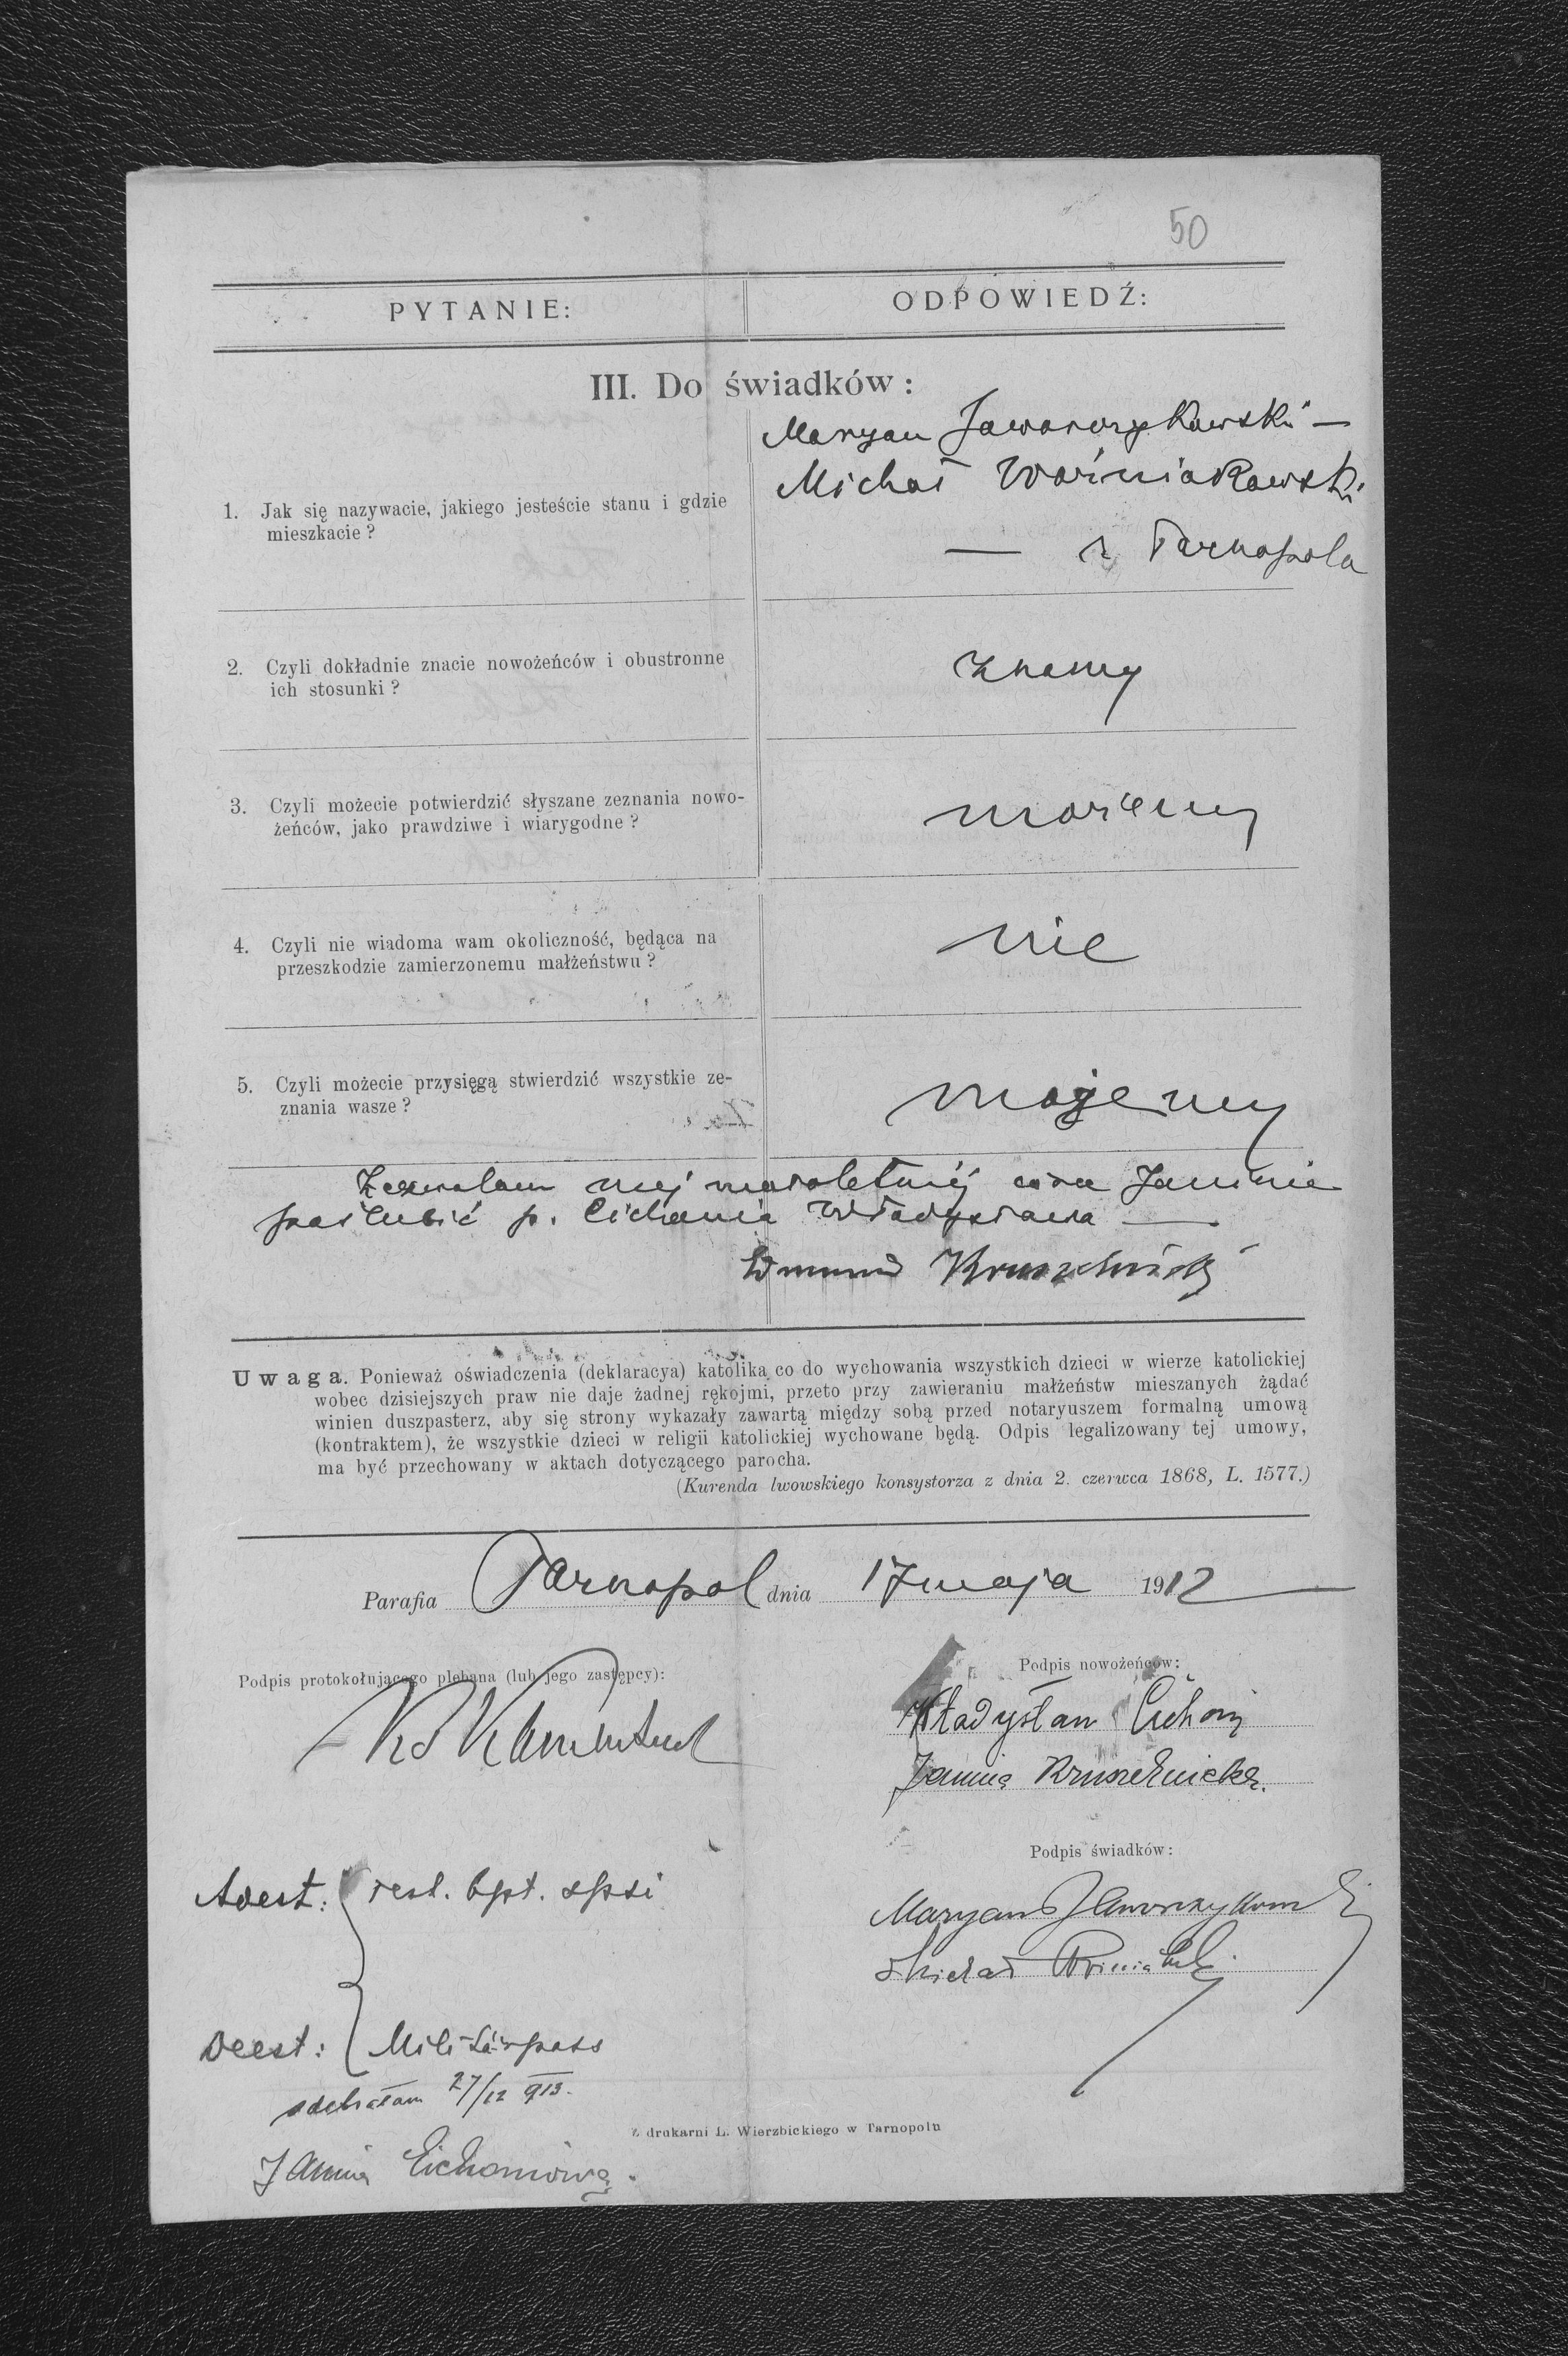 50
PYTANIE:
ODPOWIEDŹ:
III. Do świadków:
Maryan Jaworczykowski —
Michał Woźniakowski
— z Tarnopola
1. Jak się nazywacie, jakiego jesteście stanu i gdzie
mieszkacie?
2. Czyli dokładnie znacie nowożeńców i obustronne
ich stosunki?
znamy
3. Czyli możecie potwierdzić słyszane zeznania nowo-
żeńców, jako prawdziwe i wiarygodne?
możemy
4. Czyli nie wiadoma wam okoliczność, będąca na
przeszkodzie zamierzonemu małżeństwu?
nie
5. Czyli możecie przysięgą stwierdzić wszystkie ze-
znania wasze?
możemy
Zezwalam mej małoletniej Janinie
poślubić p. Cichonia Władysława —
Edmund Kruszelnicki
Uwaga. Ponieważ oświadczenia (deklaracya) katolika co do wychowania wszystkich dzieci w wierze katolickiej
wobec dzisiejszych praw nie daje żadnej rękojmi, przeto przy zawieraniu małżeństw mieszanych żądać
winien duszpasterz, aby się strony wykazały zawartą między sobą przed notaryuszem formalną umową
(kontraktem), że wszystkie dzieci w religii katolickiej wychowane będą. Odpis legalizowany tej umowy,
ma być przechowany w aktach dotyczącego parocha.
(Kurenda lwowskiego konsystorza z dnia 2. czerwca 1868, L. 1577.)
Parafia Tarnopol dnia 17 maja 1912
Podpis protokołującego plebana (lub jego zastępcy):
Podpis nowożeńców:
Władysław Cichoń
Janina Kruszelnicka.
Podpis świadków:
Adest: test. bpt. spsi
Maryan
Michał
Deest: Militärpass
odebrałam 27/12 913.
Z drukarni L. Wierzbickiego w Tarnopolu
Janina Cichoniowa.